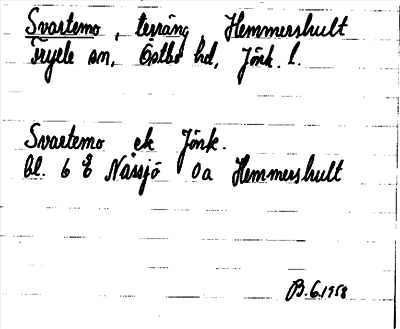 Svartemo, terräng, Hemmershult
Tryele sn, Östbo hd, Jönk. l.
Svartemo ek Jönk.
bl. 6 E Nässjö Oa Hemmershult
B. 6.1958